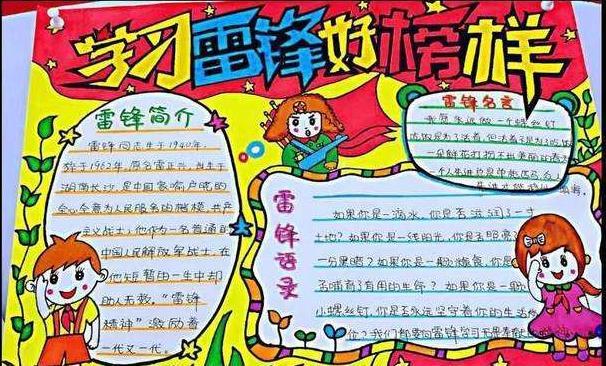 学习雷锋好榜样
雷锋简介
雷锋同志生于1940年,
于1962年,原名雷正兴,出生于
湖南长沙,是中国家喻户晓的
全心全意为人民服务的楷模,共产
主义战士!他作为一名普通的
中国人民解放军战士,在
他短暂的一生中却
助人无数,"雷锋
精神"激励着
一代又一代。
雷锋名言
我愿永远做一个螺丝钉
雷锋语录
如果你是一滴水,你是否滋润了一寸
土地?如果你是一线阳光,你是否照亮
一分黑暗?如果你是一颗粮食,你是
否哺育了有用的生命?如果你是一颗
小螺丝钉,你是否永远坚守着你的生活
位?我们都要向雷锋学习